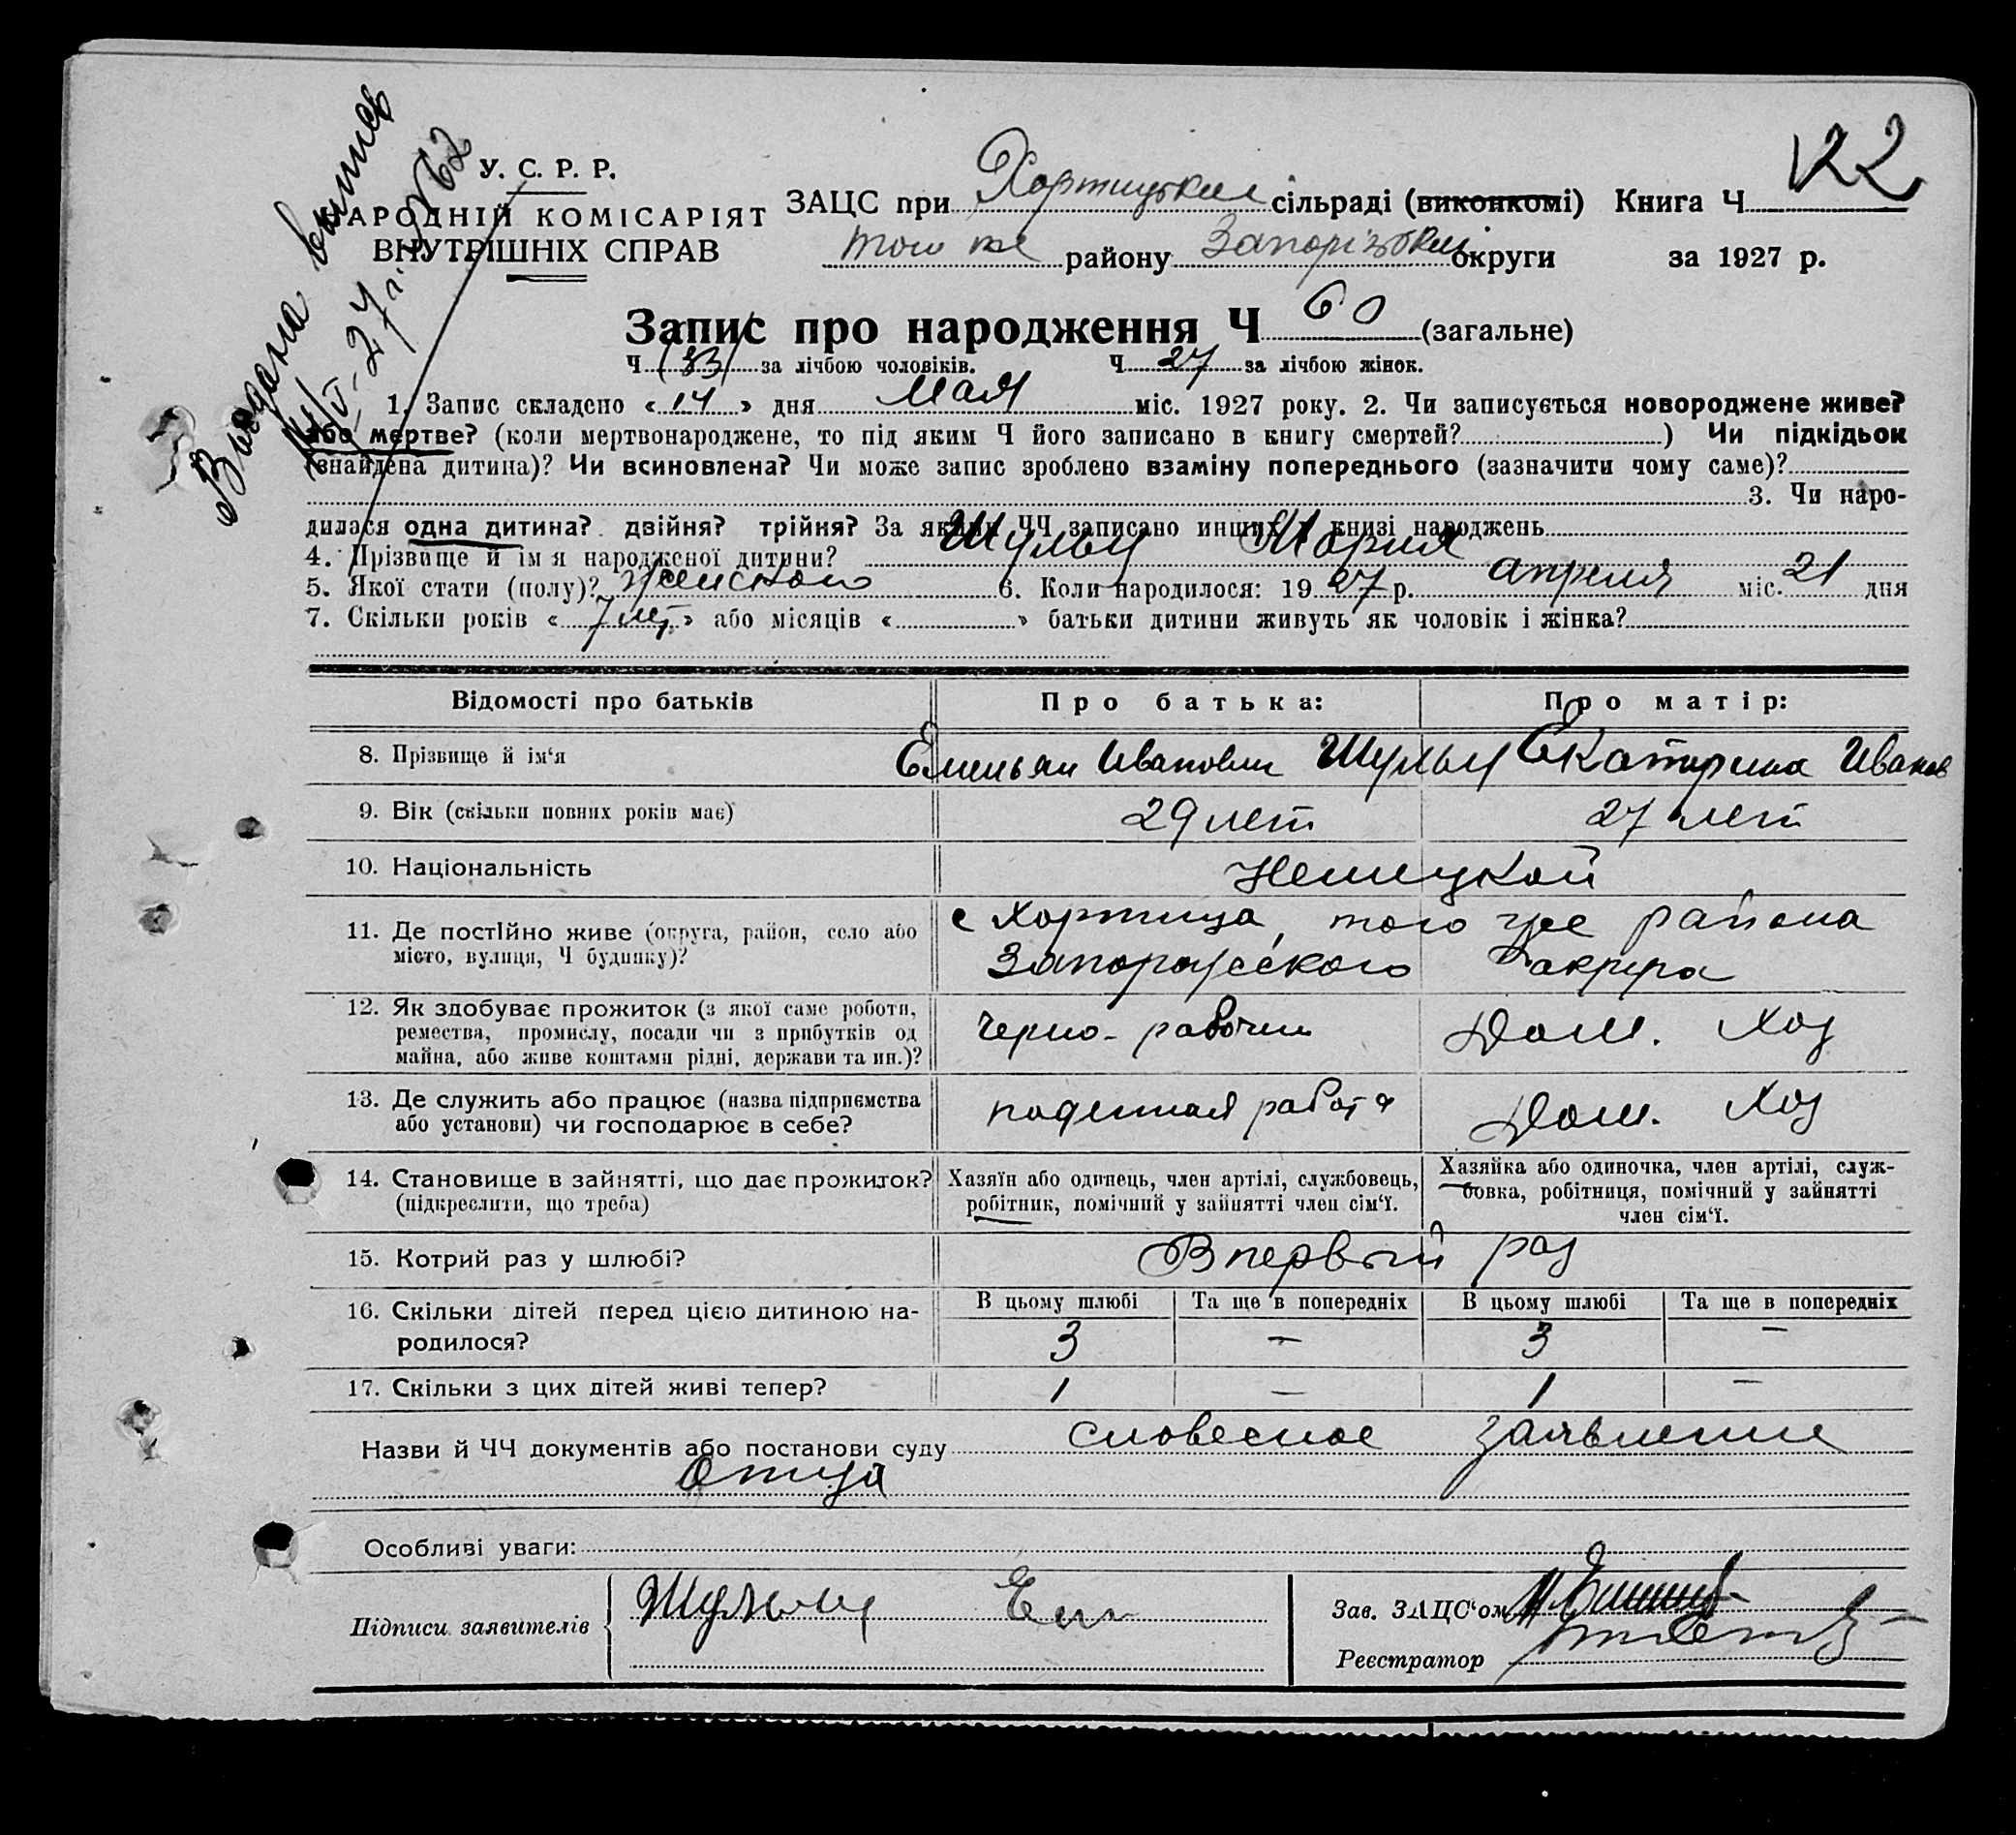 Выдана выпись
14/V-27 г. № 62
122
У. С. Р. Р.
НАРОДНІЙ КОМІСАРІЯТ
ВНУТРІШНІХ СПРАВ
ЗАЦС при Хортицькій сільраді (виконкомі) Книга Ч
того же району Запорізької округи за 1927 р.
Запис про народження Ч 60 (загальне)
Ч (33) за лічбою чоловіків. Ч 27 за лічбою жінок.
1. Запис складено « 14 » дня мая міс. 1927 року. 2. Чи записується новороджене живе?
або мертве? (коли мертвонароджене, то під яким Ч його записано в книгу смертей? ) Чи підкідьок
(знайдена дитина)? Чи всиновлена? Чи може запис зроблено взаміну попереднього (зазначити чому саме)?
3. Чи наро-
дилася одна дитина? двійня? трійня? За якими ЧЧ записано инших у книзі народжень
4. Прізвище й ім я народженої дитини? Шульц Мария
5. Якої стати (полу)? женского 6. Коли народилося: 1927 р. апреля міс. 21 дня
7. Скільки років « 7 лет » або місяців « » батьки дитини живуть як чоловік і жінка?
Відомості про батьків Про батька: Про матір:
8. Прізвище й ім‘я Емельян Иванович Шульц Екатерина Иванов
9. Вік (скільки повних років має) 29 лет 27 лет
10. Національність Немецкой
11. Де постійно живе (округа, район, село або с Хортица, того же района
місто, вулиця, Ч будинку)? Запорожского округа
12. Як здобуває прожиток (з якої саме роботи,
ремества, промислу, посади чи з прибутків од Черно-рабочий Дом. Хоз
майна, або живе коштами рідні, держави та ин.)?
13. Де служить або працює (назва підприємства поденная работа Дом. Хоз
або установи) чи господарює в себе?
14. Становище в зайнятті, що дає прожиток? Хазяїн або одинець, член артілі, службовець, Хазяйка або одиночка, член артілі, служ-
(підкреслити, що треба) робітник, помічний у зайнятті член сім‘ї. бовка, робітниця, помічний у зайнятті
член сім‘ї.
15. Котрий раз у шлюбі? Впервый раз
16. Скільки дітей перед цією дитиною на- В цьому шлюбі Та ще в попередніх В цьому шлюбі Та ще в попередніх
родилося? 3 – 3 –
17. Скільки з цих дітей живі тепер? 1 – 1 –
Назви й ЧЧ документів або постанови суду словесное заявление
отца
Особливі уваги:
Підписи заявителів Шульц Ем
Зав. ЗАЦС‘ом
Реєстратор